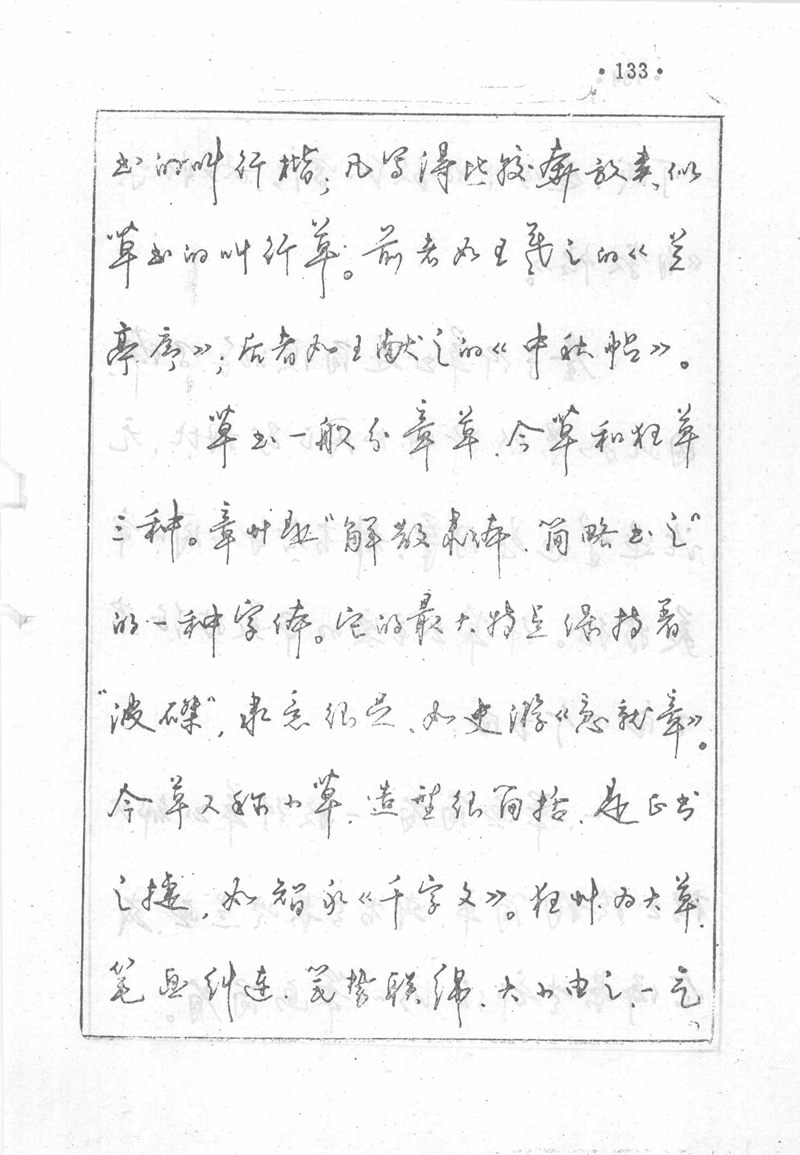 ·133·
书的叫行楷；凡写得比较奔放类似
草书的叫行草。前者如王羲之的《兰
亭序》；后者如王献之的《中秋帖》。
草书一般分章草、今草和狂草
三种。章草是“解散隶体、简略书之”
的一种字体。它的最大特点保持着
“波磔”，隶意很足、如史游《急就章》。
今草又称小草、造型很简括、是正书
之捷，如智永《千字文》。狂草为大草，
笔画纠连、笔势联绵、大小由之、一气、